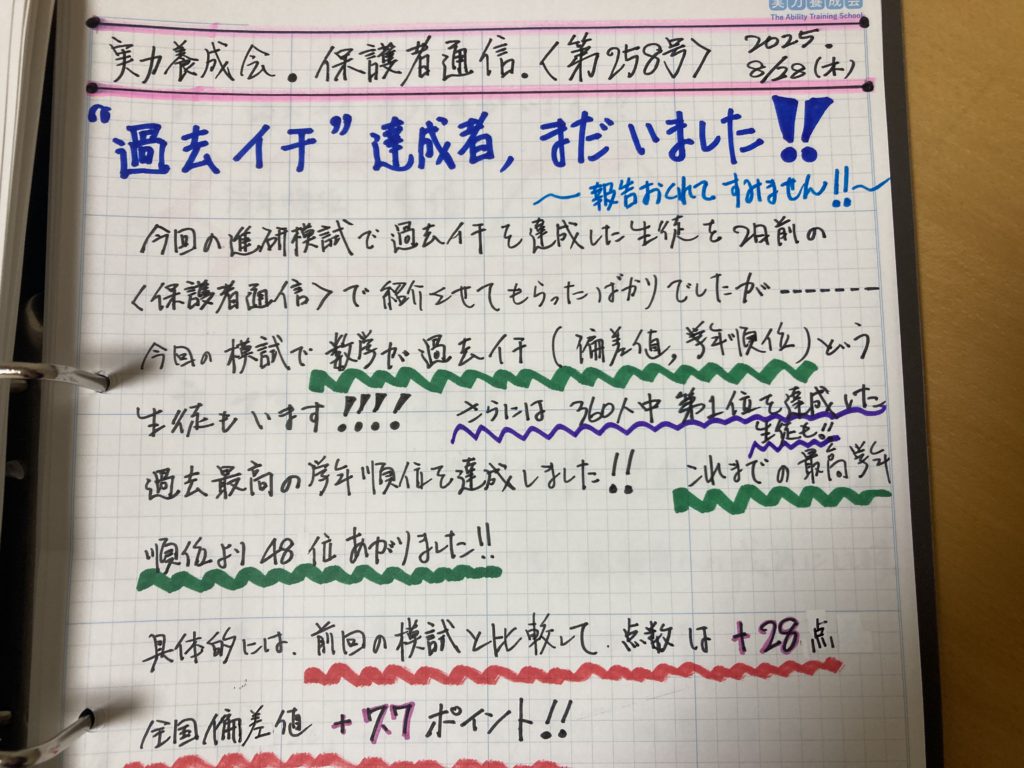 実力養成会
The Ability Training School
実力養成会.保護者通信.〈第258号〉
2025.
8/28(木)
“過去イチ”達成者,まだいました!!
〜報告おくれてすみません!!〜
今回の進研模試で過去イチを達成した生徒を2日前の
〈保護者通信〉で紹介させてもらったばかりでしたが-------
今回の模試で数学が過去イチ(偏差値,学年順位)という
生徒もいます!!!! さらには360人中第1位を達成した
生徒も!!
過去最高の学年順位を達成しました!! これまでの最高学年
順位より48位あがりました!!
具体的には.前回の模試と比較して.点数は+28点
全国偏差値 +7.7ポイント!!